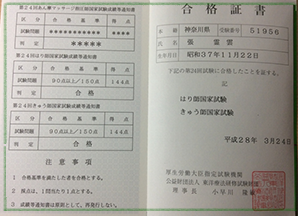 第24回あん摩マッサージ指圧師国家試験成績等通知書
区分 合格基準 得点
試験問題 ************ ****
判定 *****
第24回はり師国家試験成績等通知書
区分 合格基準 得点
試験問題 90点以上/150点 144点
判定 合格
第24回きゅう師国家試験成績等通知書
区分 合格基準 得点
試験問題 90点以上/150点 144点
判定 合格
注意事項
1 合格基準を満たした者を合格とする。
2 採点は、1問当たり1点とする。
3 成績通知書は原則として、再発行しない。
合格証書
本籍 神奈川県 受験番号 51956
氏名 張
生年月日 昭和37年11月22日
下記の第24回試験に合格したことを証する。
記
はり師国家試験
きゅう師国家試験
平成28年 3月24日
厚生労働大臣指定試験機関
公益財団法人 東洋療法研修試験財団
理事長 小早川